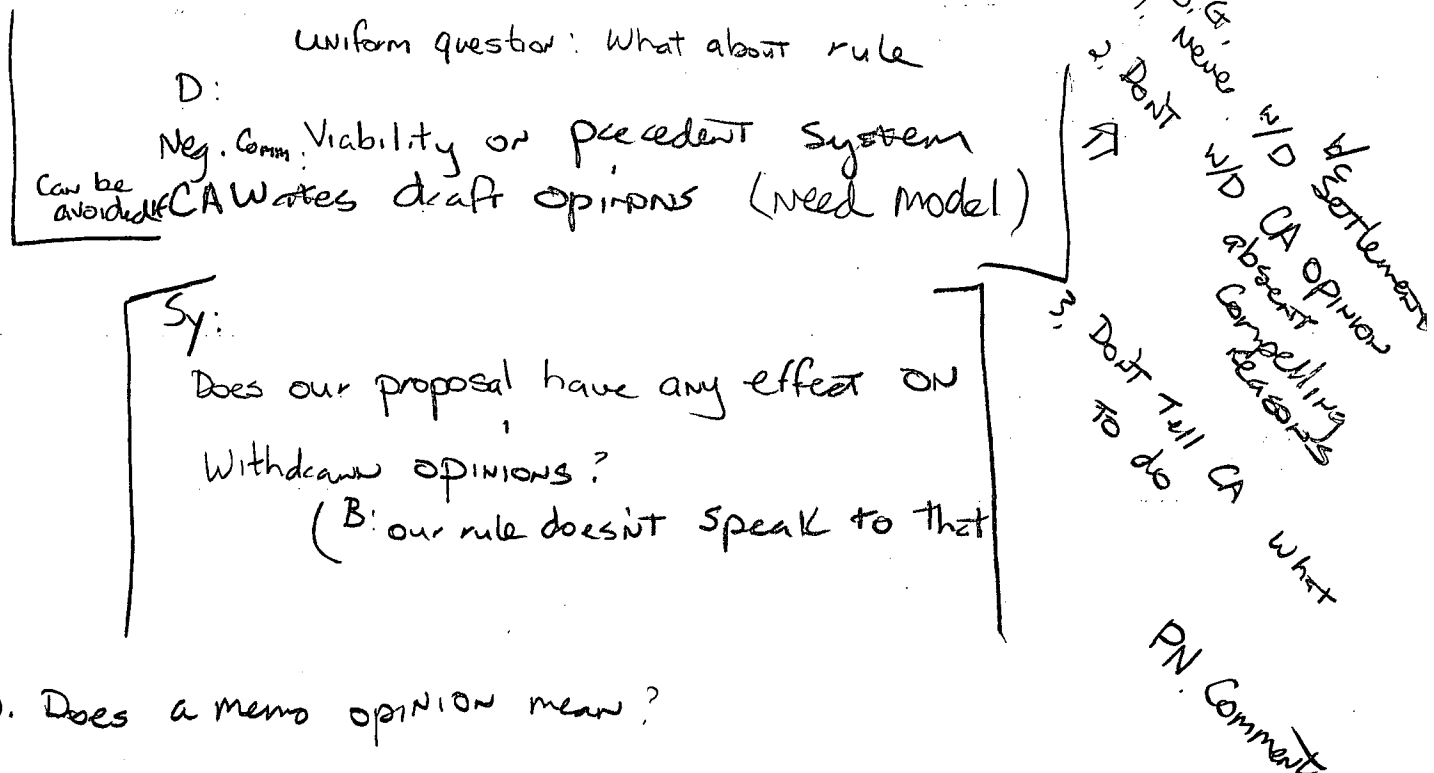 Uniform question: What about rule
D:
Neg. Comm: Viability on precedent system
Can be
avoided if CA Writes draft opinions (need model)
Sy:
Does our proposal have any effect on
Withdrawn opinions?
(B: our rule doesn't speak to that
. Does a memo opinion mean?
G.
1. Never w/D b/c Settlement
2. Don't w/D CA opinion
absent
Compelling
reasons
3. Don't Tell CA What
To do
PN. Comment